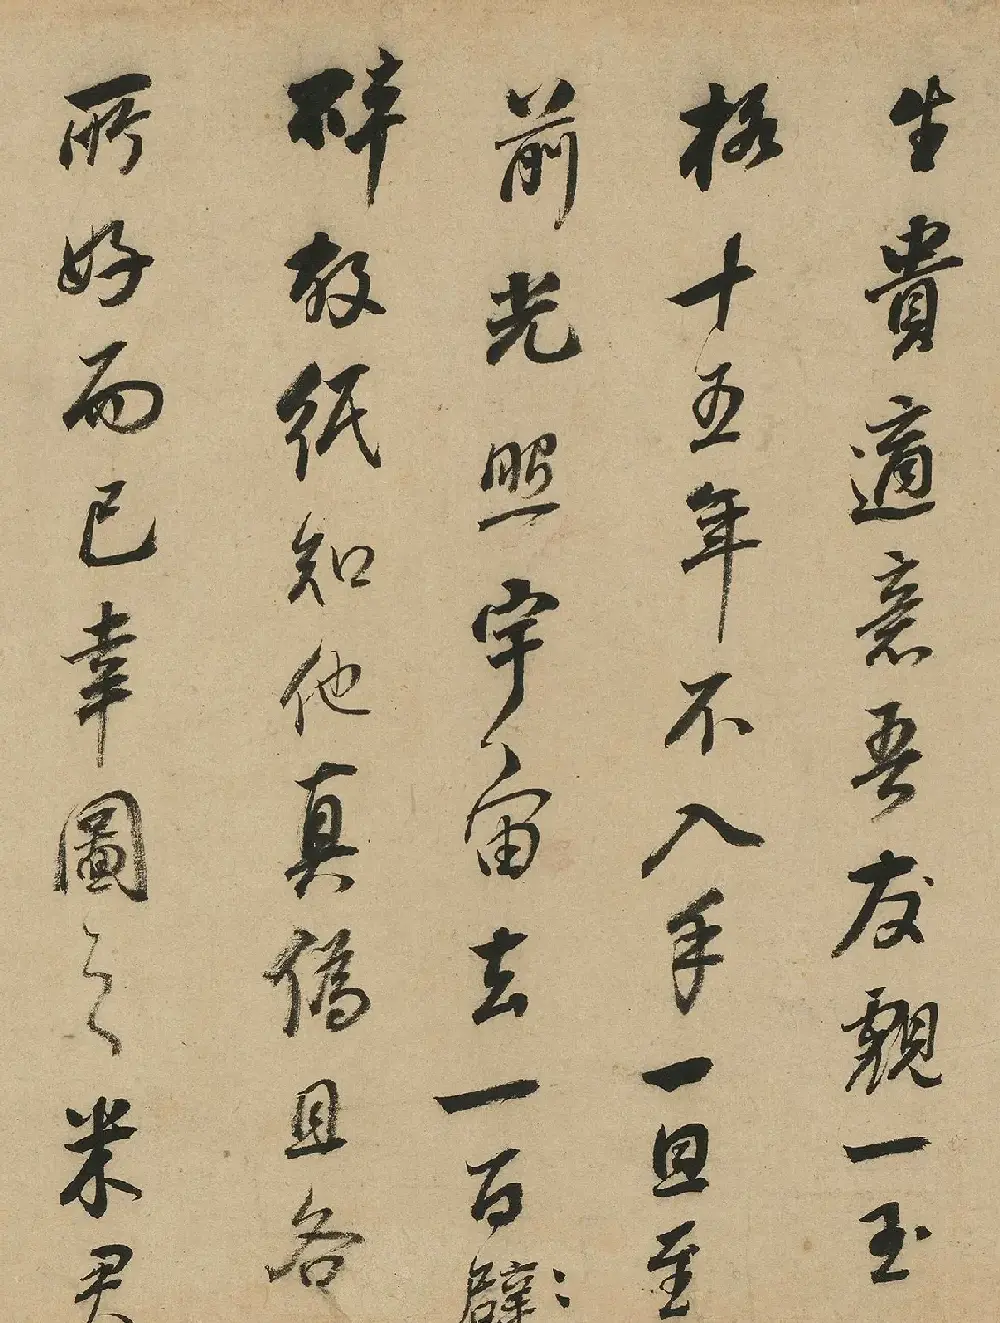 生貴適意吾友覷一玉
格十五年不入手一旦至
前光照宇宙去一百
碎故紙知他真偽且各
所好而已幸圖之米